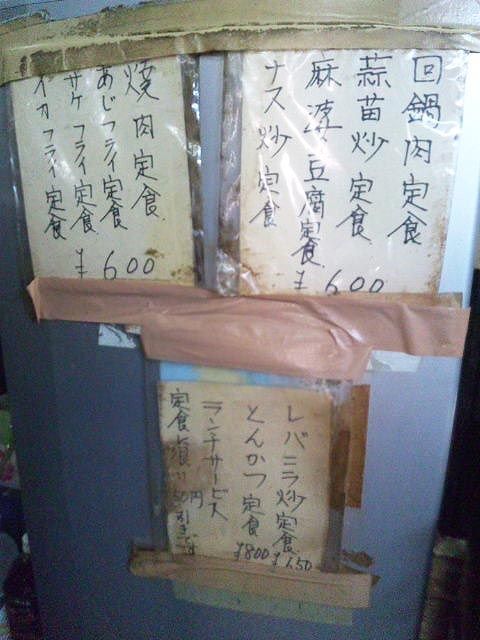 回鍋肉定食
蒜苗炒定食
麻婆豆腐定食
ナス炒定食
¥600
焼肉定食
あじフライ定食
サケフライ定食
イカフライ定食
¥600
レバニラ炒定食 ¥650
とんかつ定食 ¥800
ランチサービス
定食に限り50円引きです